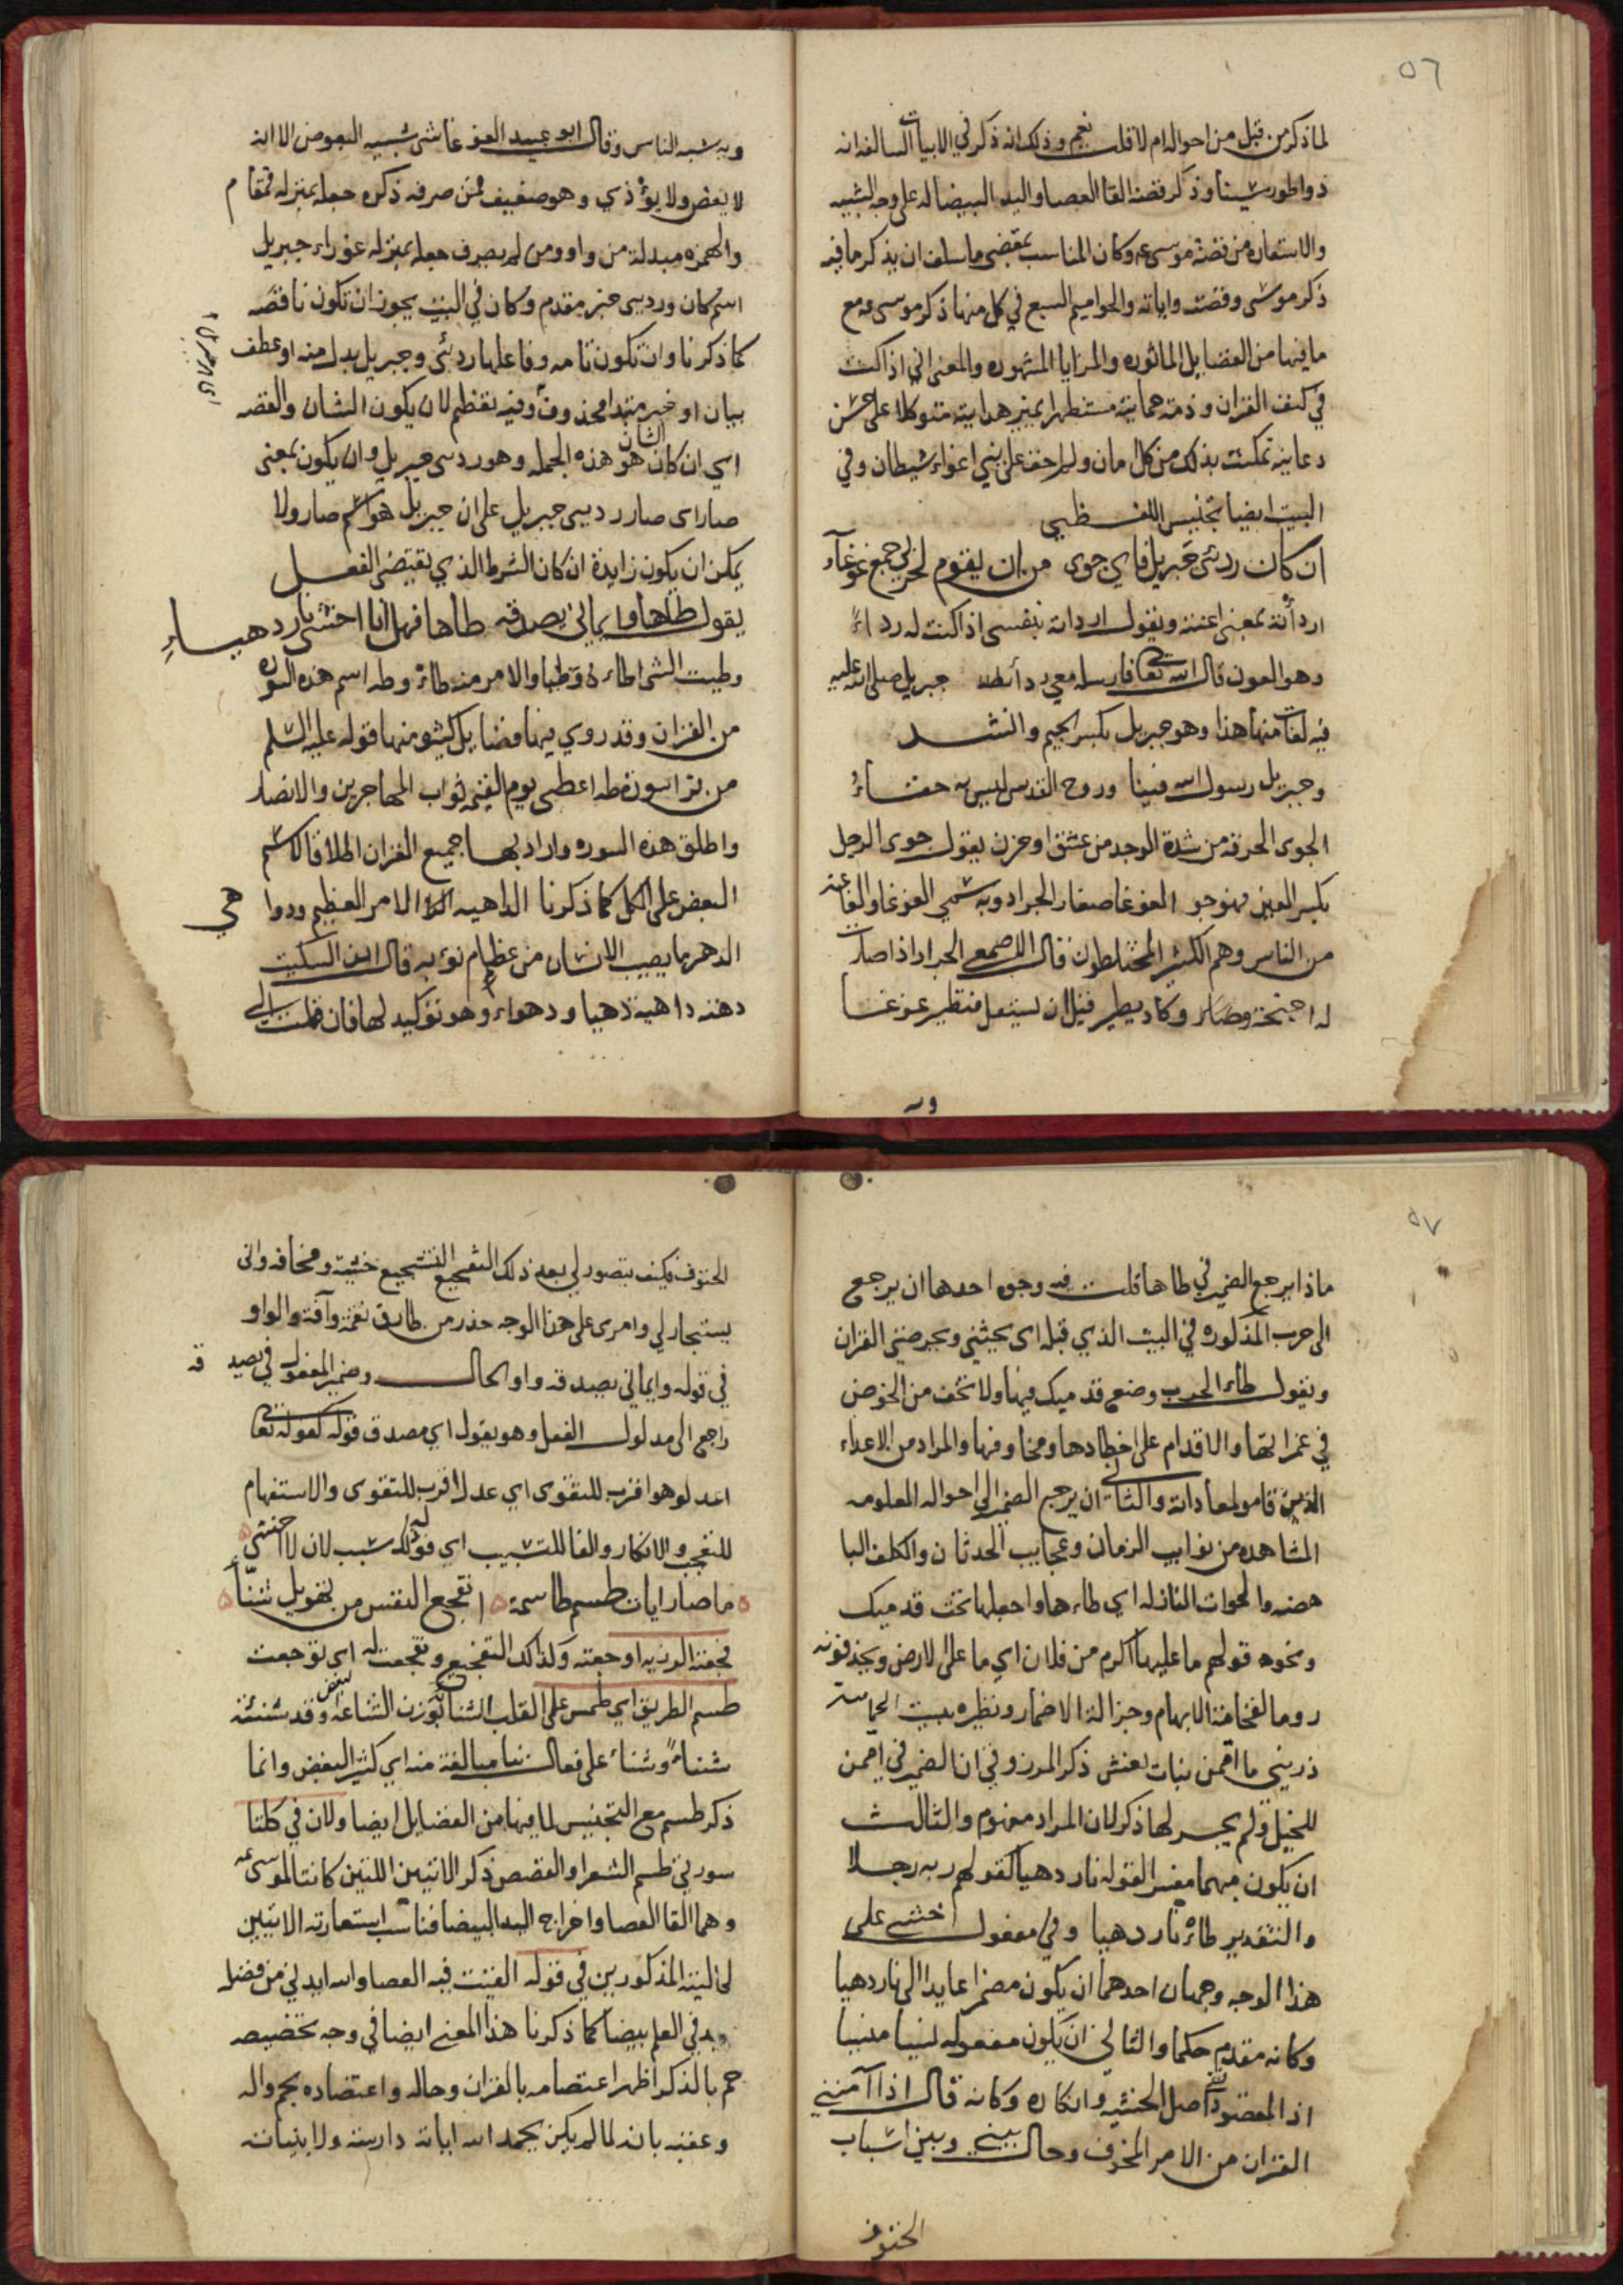 ٥٦
لما ذكر من قبل من احواله ام لا قلت نعم وذلك انه ذكر في الابيات السالفه انه
ذواطور سينا وذكر قصة القا العصا واليد البيضا له على وجه التشبيه
والاستعاره من قصة موسى عم وكان المناسب بمقتضى ما سلف ان يذكر ما فيه
ذكر موسى وقصته واياته والحواميم السبع في كل منها ذكر موسى عم مع
ما فيها من الفضايل الماثوره والمزايا المشهوره والمعنى اني اذا كنت
في كنف القران وذمة حمايته مستظهرا بمير هدايته متوكلا على حسن
رعايته تمكنت بذلك من كل امان ولم اخف على نفسي اغواء شيطان وفي
البيت ايضا تجنيس اللفظي
ان كان ردئى جبريل فاي جوى من ان يقوم لحربي جمع غوغآء
اردأته بمعنى اعنته ويقول اردأته بنفسي اذا كنت له ردءاً
وهو العون قال الله تعا فارسله معي ردأ جبريل صلى الله عليه
فيه لغات منها هذا وهو جبريل بكسر الجيم وانشد
وجبريل رسول الله فينا وروح القدس ليس به خفاءُ
الجوى الحرقه من شدة الوجد من عشق او حزن يقول جوى الرجل
بكسر العين فهو جو الغوغا صغار الجراد وبه سمي الغوغا والغاغه
من الناس وهم الكثير المختلطون قال الاصمعي الجراد اذا صارت
له اجنحة وصار وكاد يطير قبل ان يستقل فتطير غوغا
وبه
وبه شبه الناس وقال ابو عبيد الغوغا شى شبيه البعوض الا انه
لا يعض ولا يؤذي وهو ضعيف فمن صرفه ذكره جعله بمنزله قمقام
والهمزه مبدلة من واو ومن لم يصرف جعله بمنزله عوراء جبريل
اسم كان وردئى خبر مقدم وكان في البيت يجوز ان تكون ناقصه
كما ذكرنا وان تكون تامه وفاعلها ردئى وجبريل بدل منه او عطف
بيان او خبر مبتدا محذوف وفيه تعظيم لان يكون الشان والقصه
اي ان كان الشان هو هذه الجمله وهو ردئى جبريل وان يكون بمعنى
صار اى صار ردئى جبريل على ان جبريل هو اسم صار ولا
يمكن ان يكون زايدة ان كان الشرط الذي تقتضى الفعل
يقول طاها وايماني يصدقه طاها فهل انا اخشى نار دهياءِ
وطيت الشى اطاه وطيا والامر منه طاءْ وطه اسم هذه السوره
من القران وقد روي فيها فضايل كثيره منها قوله عليه السلم
من قرا سورة طه اعطي يوم القيمه ثواب المهاجرين والانصار
واطلق هذه السوره واراد بها جميع القران اطلاقا لاسم
البعض على الكل كما ذكرنا الداهيه الامر العظيم ودواهي
الدهر ما يصيب الانسان من عظيم نوبه قال ابن السكيت
دهته داهية دهيا ودهواء وهو توكيد لها فان قلت الى
٥٧
ماذا يرجع الضمير في طاها قلت فيه وجوه احدها ان يرجع
الى حرب المذكوره في البيت الذي قبله اى يحيثني ويحرضني القران
ويقول طاء الحرب وضع قدميك فيها ولا تخف من الخوض
في غمراتها والاقدام على اخطارها ومخاوفها والمراد من الاعداء
الذين قامو لمعاداته والثاني ان يرجع الضمير الى احواله المعلومه
المشاهده من نوايب الزمان وعجايب الحدثان والكلف البا
هضه والحوادث النازله اى طاءها واجعلها تحت قدميك
ونحوه قولهم ما عليها اكرم من فلان اي ما على الارض ويحذفونه
روما لفخامة الابهام وجزالة الاضمار ونظيره بيت الحماسة
ذريني ما اممن بنات نعش ذكر المرزوقي ان الضمير في اممن
للخيل ولم يجر لها ذكر لان المراد مفهوم والثالث
ان يكون مبهما مفسرا لقوله نار دهيا كقولهم ربه رجلا
والتقدير طاءْ نار دهيا وفي مفعول اخشى على
هذا الوجه وجهان احدهما ان يكون مضمرا عايدا الى نار دهيا
وكانه مقدم حكما والثاني ان يكون مفعوله نسيا منسيا
اذ المقصود نفي اصل الخشيه وانكاره وكانه قال اذا آمنني
القران من الامر المخوف وحال بيني وبين اسباب
الحتوف
الحتوف فكيف يتصور لي بعد ذلك التشجيع خشية ومخافه واني
يستجار لي وامرى على هذا الوجه حذر من طارق نقمة وآفة والواو
في قوله وايماني يصدقه واو الحال وضمير المفعول في يصدقه
راجع الى مدلول الفعل وهو يقول اي مصدق قوله كقوله تعا
اعدلو هو اقرب للتقوى اي عدل اقرب للتقوى والاستفهام
للتعجب والانكار والفا للتسبيب اي قولك له سبب لان لا اخشى
ما صار ايات طسم طاسمة ا تفجع النفس من تهويل شنّاءِ
فجعته الرزيه اوجعته وكذلك التفجيع وتفجعت له اي توجعت
طسم الطريق اي طمس على القلب الشناة بوزن الشناعة البغض وقد شنئته
شناءً وشناء على فعال بنا مبالغة منه اي كثير البغض وانما
ذكر طسم مع التجنيس لما فيها من الفضايل ايضا ولان في كلتا
سورتي طسم الشعرا والقصص ذكر الايتين اللتين كانتا لموسى عم
وهما القا العصا واخراج اليد البيضا فناسب استعارته الايتين
لحاليته المذكورين في قوله القيت فيه العصا والله ايدني من فضله
بيد في العلم بيضا كما ذكرنا هذا المعنى ايضا في وجه تخصيصه
حم بالذكر اظهر اعتصامه بالقران وحاله واعتضاده بحم واله
وعقبه بانه لما لم يكن بحمد الله اياته دارسة ولا بنيانه